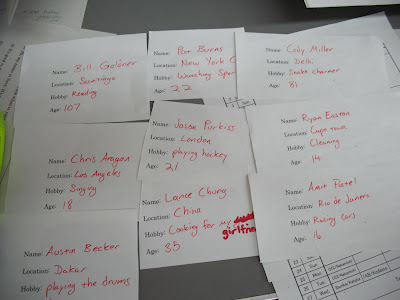 Name: Bill Goldner
Location: Santiago
Hobby: Reading
Age: 107
Name: Pat Burns
Location: New York C
Hobby: Watching Spor
Age: 22
Name: Cody Miller
Location: Delhi
Hobby: Snake charmer
Age: 81
Name: Chris Aragon
Location: Los Angeles
Hobby: Singing
Age: 18
Name: Jason Purkiss
Location: London
Hobby: playing hockey
Age: 21
Name: Ryan Easton
Location: Cape town
Hobby: Cleaning
Age: 14
Name: Austin Becker
Location: Dakar
Hobby: playing the drums
Name: Lance Chung
Location: China
Hobby: Looking for my
girlfrie
Age: 35
Name: Amit Patel
Location: Rio de Janero
Hobby: Racing cars
Age: 16